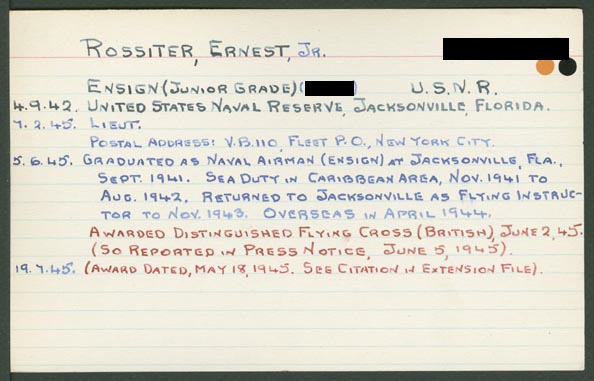 ROSSITER, ERNEST, JR.
ENSIGN (JUNIOR GRADE) ( ) U.S.N.R.
4.9.42. UNITED STATES NAVAL RESERVE, JACKSONVILLE, FLORIDA.
7.2.45. LIEUT.
POSTAL ADDRESS: V.B.110, FLEET P.O., NEW YORK CITY.
5.6.45. GRADUATED AS NAVAL AIRMAN (ENSIGN) AT JACKSONVILLE, FLA.,
SEPT. 1941. SEA DUTY IN CARIBBEAN AREA, NOV. 1941 TO
AUG. 1942. RETURNED TO JACKSONVILLE AS FLYING INSTRUC-
TOR TO NOV. 1943. OVERSEAS IN APRIL 1944.
AWARDED DISTINGUISHED FLYING CROSS (BRITISH), JUNE 2, 45.
(SO REPORTED IN PRESS NOTICE, JUNE 5, 1945).
19.7.45. (AWARD DATED, MAY 18, 1945. SEE CITATION IN EXTENSION FILE).